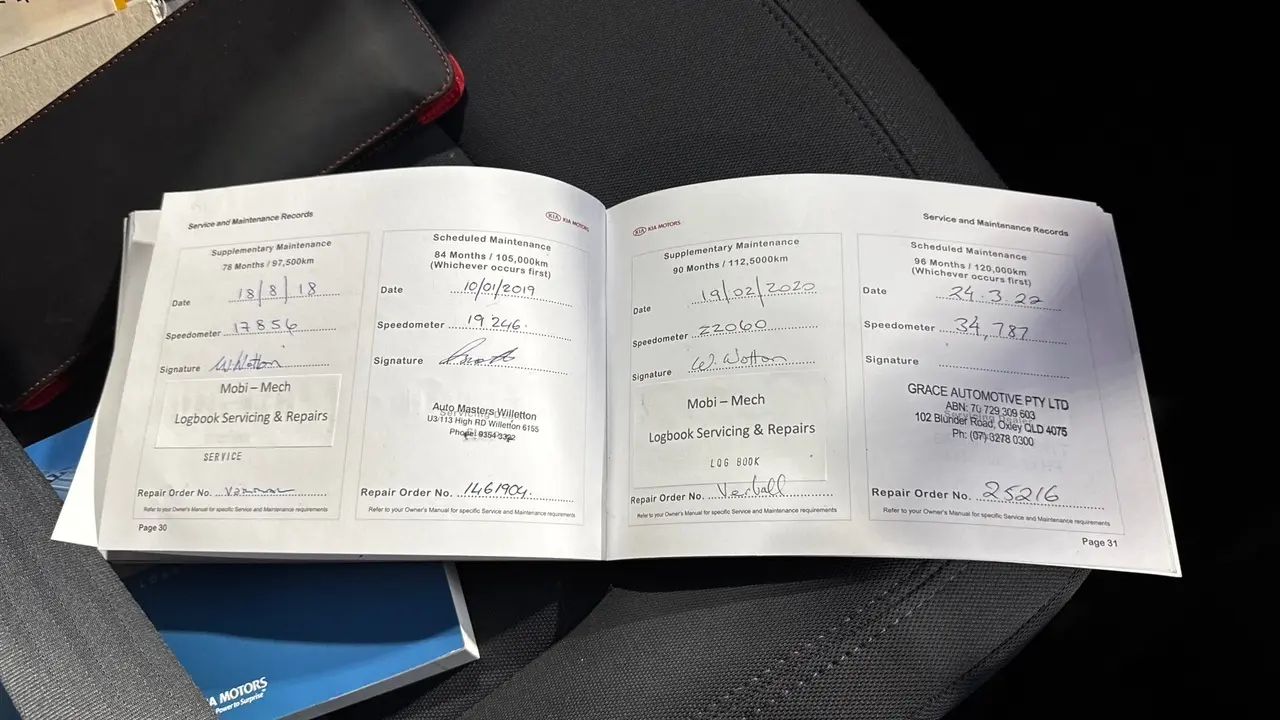 Service and Maintenance Records
KIA KIA MOTORS
Supplementary Maintenance
78 Months / 97,500km
Date 18/8/18
Speedometer 17856
Signature
Mobi – Mech
Logbook Servicing & Repairs
SERVICE
Repair Order No.
Refer to your Owner's Manual for specific Service and Maintenance requirements
Page 30
Scheduled Maintenance
84 Months / 105,000km
(Whichever occurs first)
Date 10/01/2019
Speedometer 19246.
Signature
Auto Masters Willetton
U3/113 High RD Willetton 6155
Phone: 9354 3392
Repair Order No. 1461904.
Refer to your Owner's Manual for specific Service and Maintenance requirements
KIA KIA MOTORS
Service and Maintenance Records
Supplementary Maintenance
90 Months / 112,5000km
Date 19/02/2020
Speedometer 22060
Signature W. Wotton
Mobi – Mech
Logbook Servicing & Repairs
LOG BOOK
Repair Order No. Verball
Refer to your Owner's Manual for specific Service and Maintenance requirements
Scheduled Maintenance
96 Months / 120,000km
(Whichever occurs first)
Date 24.3.22
Speedometer 34,787
Signature
GRACE AUTOMOTIVE PTY LTD
ABN: 70 729 309 603
102 Blunder Road, Oxley QLD 4075
Ph: (07) 3278 0300
Repair Order No. 25216
Refer to your Owner's Manual for specific Service and Maintenance requirements
Page 31
KIA MOTORS
Power to Surprise™